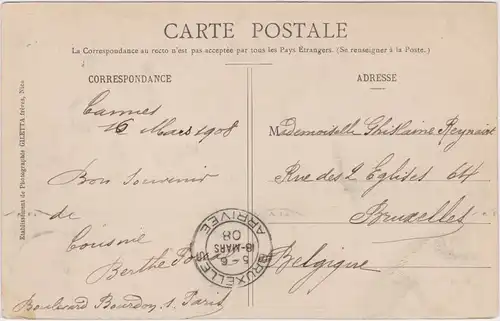 CARTE POSTALE
La Correspondance au recto n'est pas acceptée par tous les Pays Étrangers. (Se renseigner à la Poste.)
CORRESPONDANCE
Cannes
16 Mars 1908
Bon Souvenir
de
Cousine
Berthe
Boulevard Bourdon, Paris
ADRESSE
Mademoiselle Ghislaine
Rue des 2 Eglises 64
Bruxelles
Belgique
BRUXELLES
5-6
18-MARS
08
ARRIVÉE
Etablissement de Photographie GILETTA frères, Nice